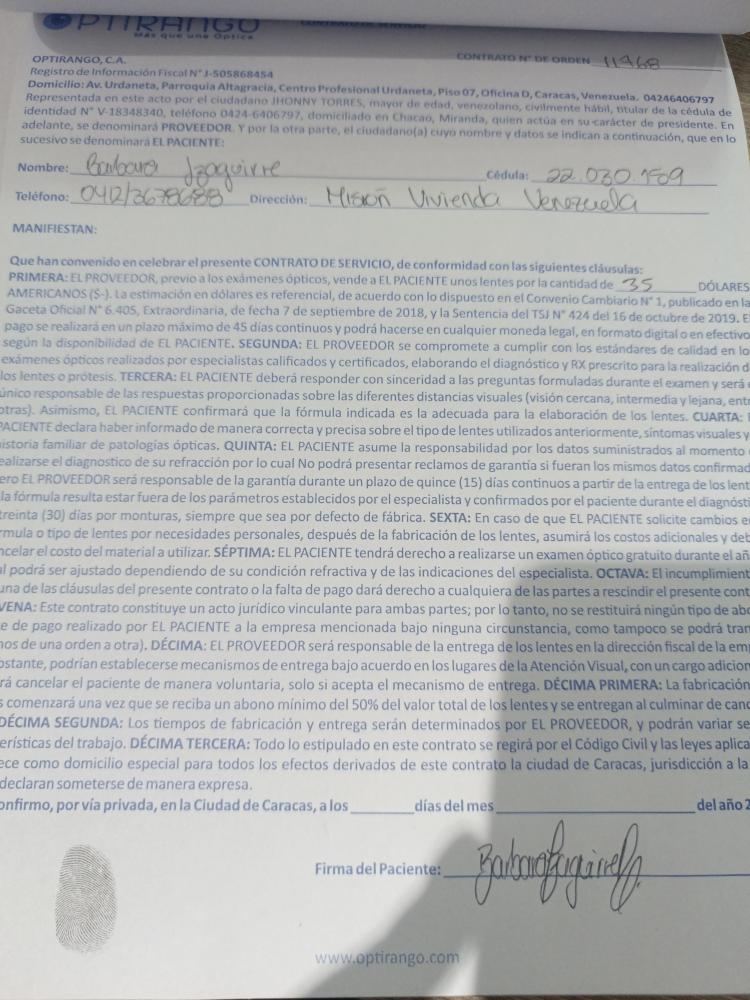 OPTIRANGO
Más que una Óptica
CONTRATO DE SERVICIO
CONTRATO N° DE ORDEN 11968
OPTIRANGO, C.A.
Registro de Información Fiscal N° J-505868454
Domicilio: Av. Urdaneta, Parroquia Altagracia, Centro Profesional Urdaneta, Piso 07, Oficina D, Caracas, Venezuela. 04246406797
Representada en este acto por el ciudadano JHONNY TORRES, mayor de edad, venezolano, civilmente hábil, titular de la cédula de
identidad N° V-18348340, teléfono 0424-6406797, domiciliado en Chacao, Miranda, quien actúa en su carácter de presidente. En
adelante, se denominará PROVEEDOR. Y por la otra parte, el ciudadano(a) cuyo nombre y datos se indican a continuación, que en lo
sucesivo se denominará EL PACIENTE:
Nombre: Barbara Izaguirre Cédula: 22.030.789
Teléfono: 0412/3678688 Dirección: Misión Vivienda Venezuela
MANIFIESTAN:
Que han convenido en celebrar el presente CONTRATO DE SERVICIO, de conformidad con las siguientes cláusulas:
PRIMERA: EL PROVEEDOR, previo a los exámenes ópticos, vende a EL PACIENTE unos lentes por la cantidad de 35 DÓLARES
AMERICANOS (S-). La estimación en dólares es referencial, de acuerdo con lo dispuesto en el Convenio Cambiario N° 1, publicado en la
Gaceta Oficial N° 6.405, Extraordinaria, de fecha 7 de septiembre de 2018, y la Sentencia del TSJ N° 424 del 16 de octubre de 2019. E
pago se realizará en un plazo máximo de 45 días continuos y podrá hacerse en cualquier moneda legal, en formato digital o en efectivo
según la disponibilidad de EL PACIENTE. SEGUNDA: EL PROVEEDOR se compromete a cumplir con los estándares de calidad en lo
exámenes ópticos realizados por especialistas calificados y certificados, elaborando el diagnóstico y RX prescrito para la realización d
los lentes o prótesis. TERCERA: EL PACIENTE deberá responder con sinceridad a las preguntas formuladas durante el examen y será
único responsable de las respuestas proporcionadas sobre las diferentes distancias visuales (visión cercana, intermedia y lejana, entr
otras). Asimismo, EL PACIENTE confirmará que la fórmula indicada es la adecuada para la elaboración de los lentes. CUARTA:
PACIENTE declara haber informado de manera correcta y precisa sobre el tipo de lentes utilizados anteriormente, síntomas visuales y
istoria familiar de patologías ópticas. QUINTA: EL PACIENTE asume la responsabilidad por los datos suministrados al momento
ealizarse el diagnostico de su refracción por lo cual No podrá presentar reclamos de garantía si fueran los mismos datos confirmad
ero EL PROVEEDOR será responsable de la garantía durante un plazo de quince (15) días continuos a partir de la entrega de los lent
la fórmula resulta estar fuera de los parámetros establecidos por el especialista y confirmados por el paciente durante el diagnósti
treinta (30) días por monturas, siempre que sea por defecto de fábrica. SEXTA: En caso de que EL PACIENTE solicite cambios e
rmula o tipo de lentes por necesidades personales, después de la fabricación de los lentes, asumirá los costos adicionales y deb
ncelar el costo del material a utilizar. SÉPTIMA: EL PACIENTE tendrá derecho a realizarse un examen óptico gratuito durante el añ
al podrá ser ajustado dependiendo de su condición refractiva y de las indicaciones del especialista. OCTAVA: El incumplimient
una de las cláusulas del presente contrato o la falta de pago dará derecho a cualquiera de las partes a rescindir el presente cont
VENA: Este contrato constituye un acto jurídico vinculante para ambas partes; por lo tanto, no se restituirá ningún tipo de abo
e de pago realizado por EL PACIENTE a la empresa mencionada bajo ninguna circunstancia, como tampoco se podrá tran
nos de una orden a otra). DÉCIMA: EL PROVEEDOR será responsable de la entrega de los lentes en la dirección fiscal de la em
bstante, podrían establecerse mecanismos de entrega bajo acuerdo en los lugares de la Atención Visual, con un cargo adicion
rá cancelar el paciente de manera voluntaria, solo si acepta el mecanismo de entrega. DÉCIMA PRIMERA: La fabricación
s comenzará una vez que se reciba un abono mínimo del 50% del valor total de los lentes y se entregan al culminar de canc
DÉCIMA SEGUNDA: Los tiempos de fabricación y entrega serán determinados por EL PROVEEDOR, y podrán variar se
erísticas del trabajo. DÉCIMA TERCERA: Todo lo estipulado en este contrato se regirá por el Código Civil y las leyes aplica
ece como domicilio especial para todos los efectos derivados de este contrato la ciudad de Caracas, jurisdicción a la
declaran someterse de manera expresa.
onfirmo, por vía privada, en la Ciudad de Caracas, a los ________ días del mes ________ del año 2
Firma del Paciente: Barbara Izaguirre
www.optirango.com